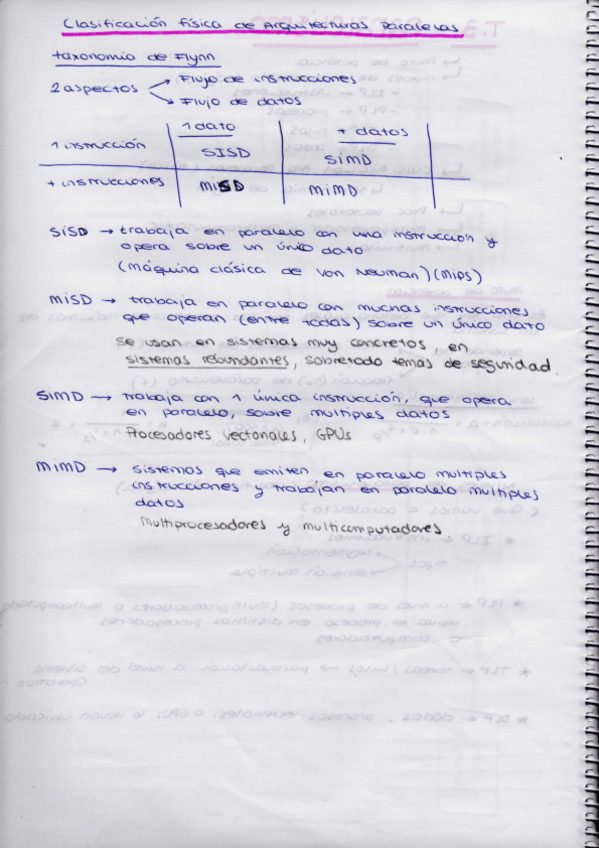 Clasificación física de Arquitecturas Paralelas
taxonomía de Flynn
2 aspectos → Flujo de instrucciones
→ Flujo de datos
1 dato + datos
1 instrucción SISD SIMD
+ instrucciones MISD MIMD
SISD → trabaja en paralelo con una instrucción y
opera sobre un único dato
(máquina clásica de Von Neuman) (Mips)
MISD → trabaja en paralelo con muchas instrucciones
que operan (entre todas) sobre un único dato
Se usan en sistemas muy concretos, en
sistemas redundantes, sobretodo temas de seguridad.
SIMD → Trabaja con 1 única instrucción, que opera
en paralelo, sobre multiples datos
Procesadores vectoriales, GPUs
MIMD → Sistemas que emiten en paralelo multiples
instrucciones y trabajan en paralelo multiples
datos
Multiprocesadores y multicomputadores